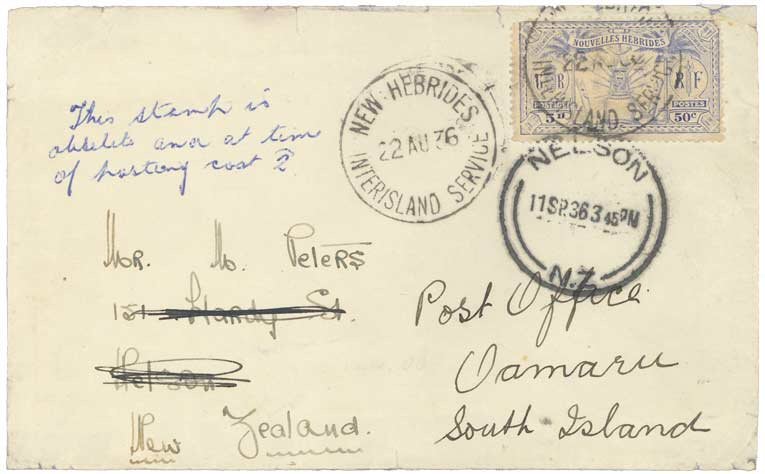 NOUVELLES HEBRIDES
R F
POSTAGE POSTES
5D 50C
22 AU 36
INTERISLAND SERVICE
NEW HEBRIDES
22 AU 36
INTERISLAND SERVICE
NELSON
11 SP 36 3 45 PM
N.Z.
This stamp is
obselete and at time
of posting cost 2
Mr. M. Peters
151 Hardy St.
Nelson
New Zealand.
Post Office
Oamaru
South Island